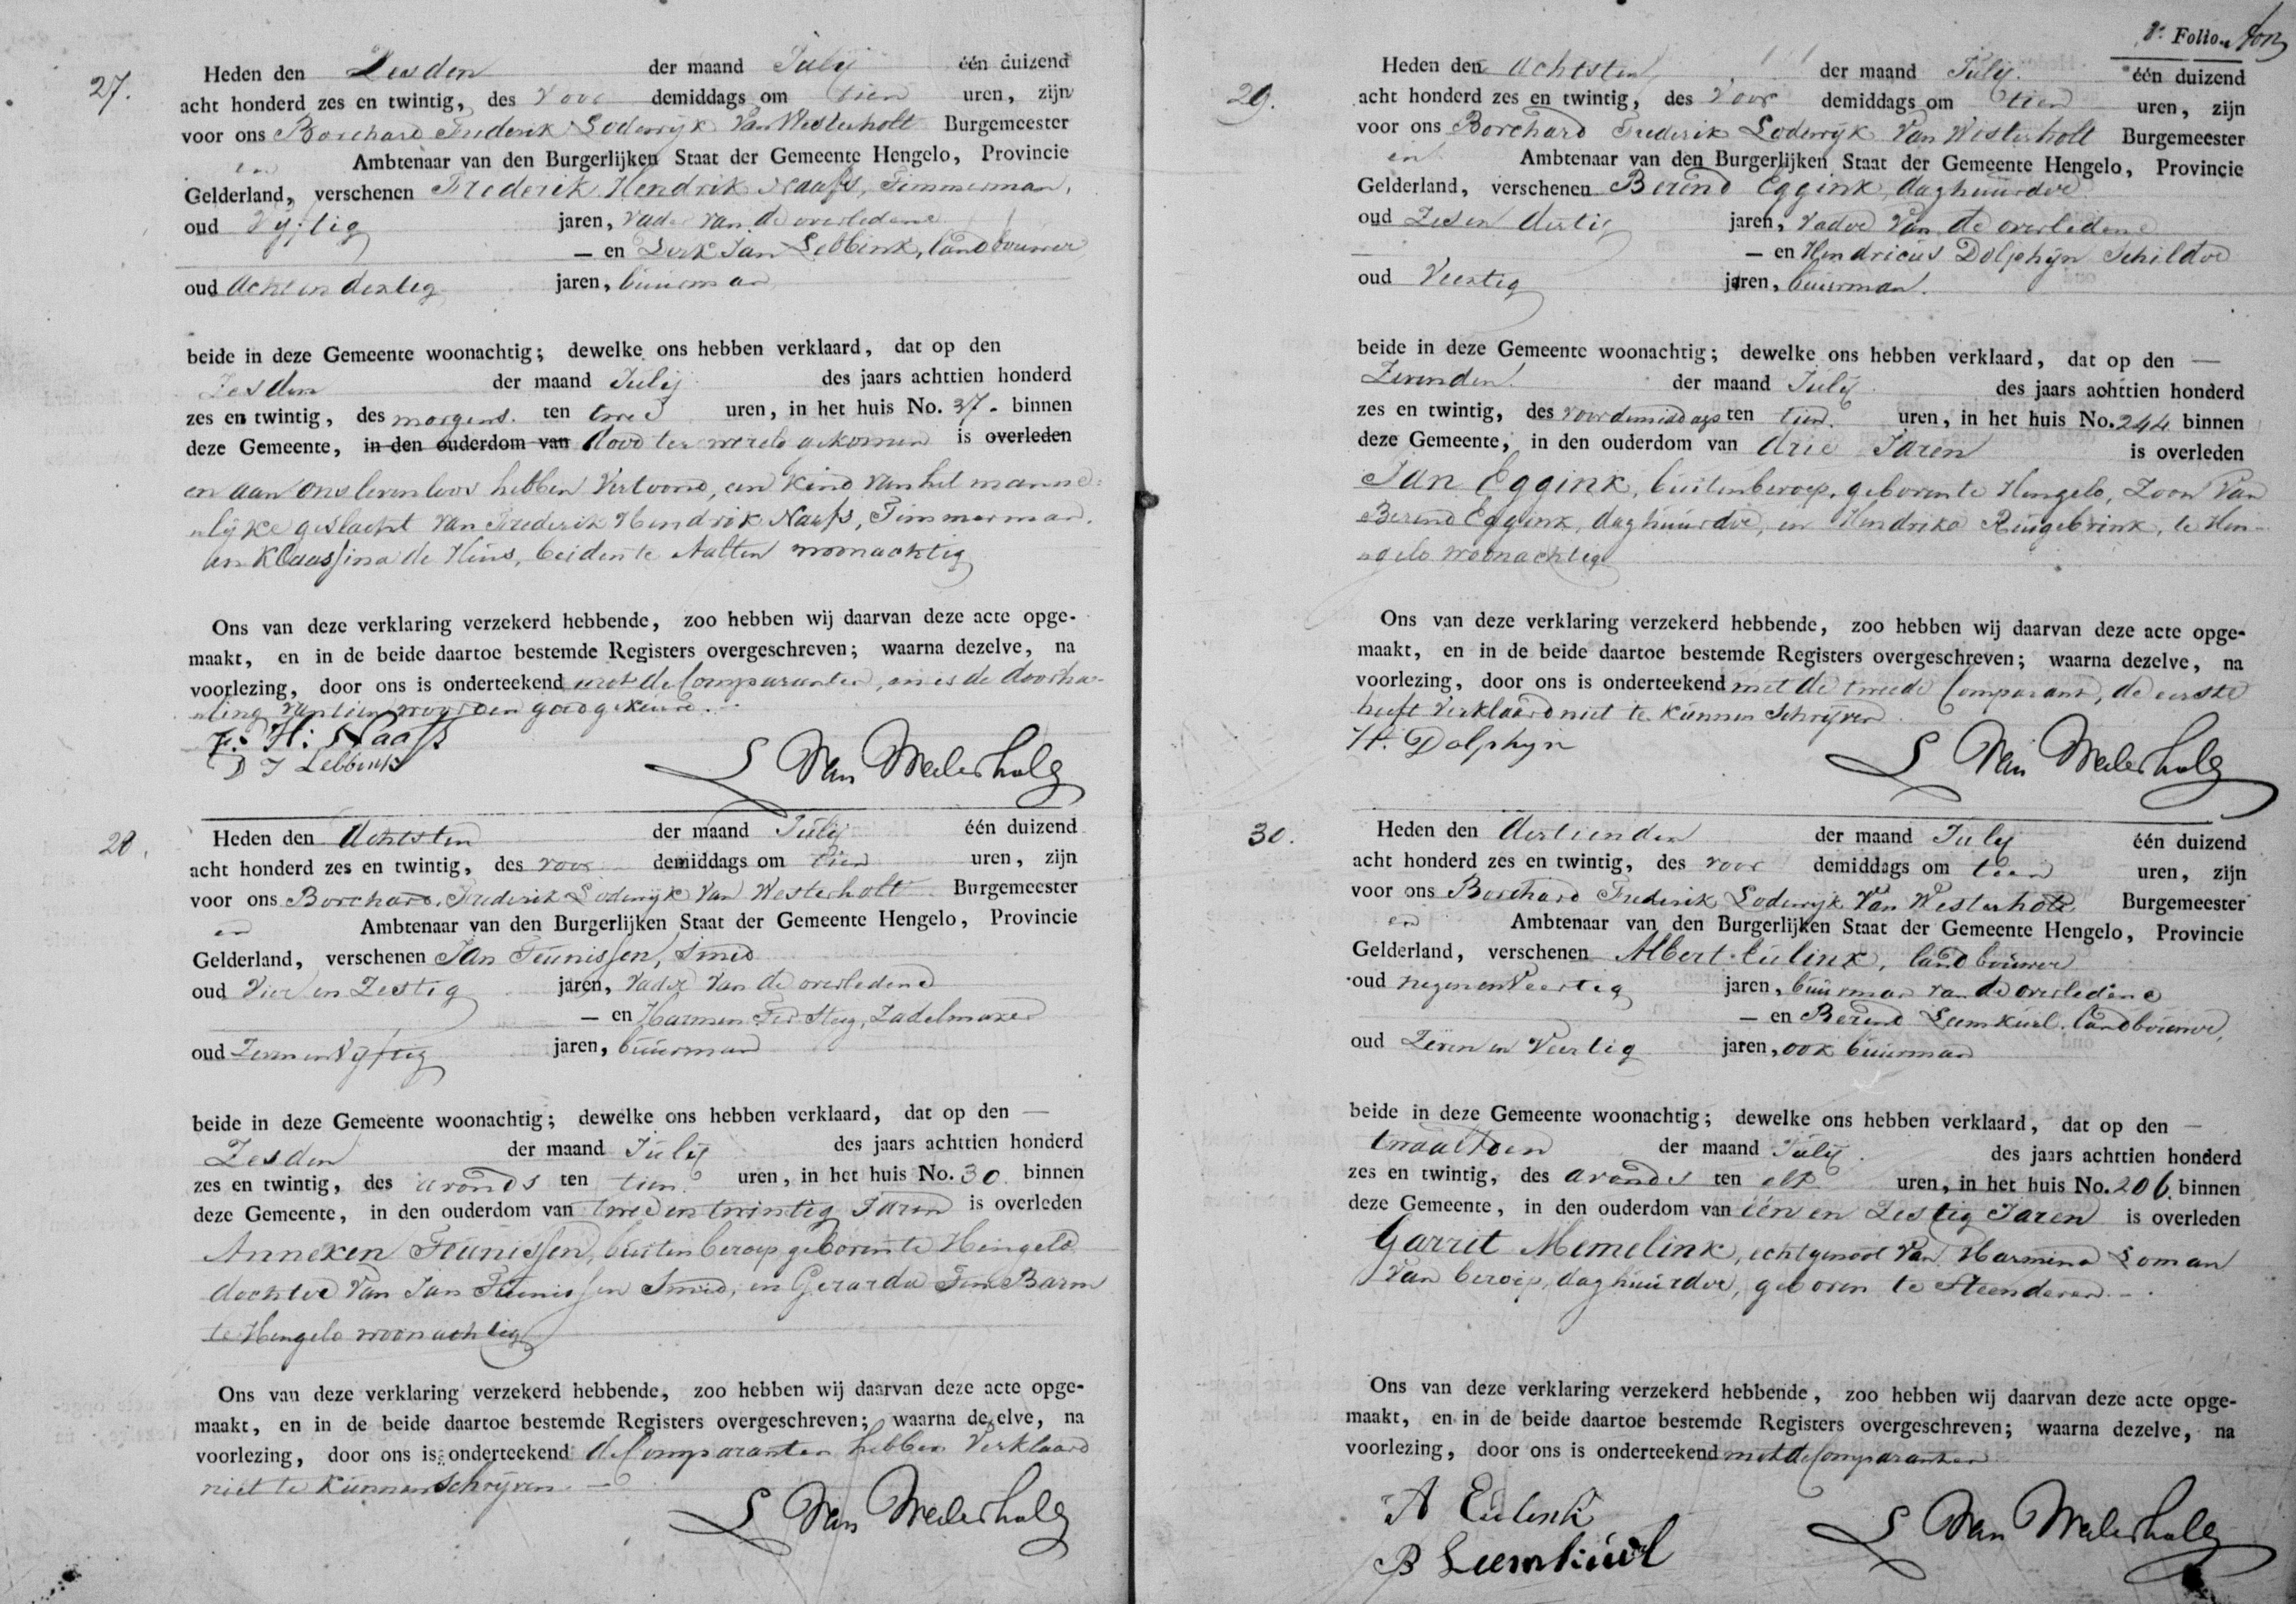 27.
Heden den Zesden der maand Julij één duizend
acht honderd zes en twintig, des voor demiddags om tien uren, zijn
voor ons Borchard Frederik Lodewijk Van Westerholt Burgemeester
en Ambtenaar van den Burgerlijken Staat der Gemeente Hengelo, Provincie
Gelderland, verschenen Frederik Hendrik Naafs, Timmerman,
oud Vijftig jaren, vader van de overledene
— en Derk Jan Lebbink, landbouwer
oud Acht en dertig jaren, buurman
beide in deze Gemeente woonachtig; dewelke ons hebben verklaard, dat op den
Zesden der maand Julij des jaars achttien honderd
zes en twintig, des morgens ten twee uren, in het huis No. 37. binnen
deze Gemeente, in den ouderdom van dood ter wereld gekomen is overleden
en aan ons levenloos hebben Vertoond, een Kind van het manne=
lijke geslacht van Frederik Hendrik Naafs, Timmerman.
en Klaassina de Huus, beiden te Aalten woonachtig
Ons van deze verklaring verzekerd hebbende, zoo hebben wij daarvan deze acte opge-
maakt, en in de beide daartoe bestemde Registers overgeschreven; waarna dezelve, na
voorlezing, door ons is onderteekend met de Comparanten, en is de doorha-
ling van tien woorden goedgekeurd.
F: H: Naafs
D J Lebbink
L Van Westerholt
28.
Heden den Achtsten der maand Julij één duizend
acht honderd zes en twintig, des voor demiddags om tien uren, zijn
voor ons Borchard Frederik Lodewijk Van Westerholt Burgemeester
en Ambtenaar van den Burgerlijken Staat der Gemeente Hengelo, Provincie
Gelderland, verschenen Jan Teunissen, Smid
oud Vier en Zestig jaren, Vader Van de overledene
— en Harmen Ter Steeg, Zadelmaker
oud Zeven en Vijftig jaren, buurman
beide in deze Gemeente woonachtig; dewelke ons hebben verklaard, dat op den —
Zesden der maand Julij des jaars achttien honderd
zes en twintig, des avonds ten tien uren, in het huis No. 30 binnen
deze Gemeente, in den ouderdom van twee en twintig Jaren is overleden
Anneken Teunissen, buiten beroep, geboren te Hengelo
dochter Van Jan Teunissen Smid, en Gerarda Ten Barm
te Hengelo woonachtig
Ons van deze verklaring verzekerd hebbende, zoo hebben wij daarvan deze acte opge-
maakt, en in de beide daartoe bestemde Registers overgeschreven; waarna dezelve, na
voorlezing, door ons is onderteekend de Comparanten hebben Verklaard
niet te Kunnen Schrijven. —
L Van Westerholt
2e. Folio.
29.
Heden den Achtsten der maand Julij één duizend
acht honderd zes en twintig, des voor demiddags om tien uren, zijn
voor ons Borchard Frederik Lodewijk Van Westerholt Burgemeester
en Ambtenaar van den Burgerlijken Staat der Gemeente Hengelo, Provincie
Gelderland, verschenen Berend Eggink, daghuurder
oud Zes en dertig jaren, Vader Van de overledene
— en Hendricus Dolphijn Schilder
oud Veertig jaren, buurman.
beide in deze Gemeente woonachtig; dewelke ons hebben verklaard, dat op den —
Zevenden der maand Julij des jaars achttien honderd
zes en twintig, des voordemiddags ten tien uren, in het huis No. 244 binnen
deze Gemeente, in den ouderdom van drie Jaren is overleden
Jan Eggink, buiten beroep, geboren te Hengelo, Zoon Van
Berend Eggink, daghuurder, en Hendrika Ruigebrink, te Hen-
gelo woonachtig
Ons van deze verklaring verzekerd hebbende, zoo hebben wij daarvan deze acte opge-
maakt, en in de beide daartoe bestemde Registers overgeschreven; waarna dezelve, na
voorlezing, door ons is onderteekend met de tweede Comparant, de eerste
heeft Verklaard niet te Kunnen Schrijven
H. Dolphyn
L Van Westerholt
30.
Heden den dertienden der maand July één duizend
acht honderd zes en twintig, des voor demiddags om tien uren, zijn
voor ons Borchard Frederik Lodewijk Van Westerholt Burgemeester
en Ambtenaar van den Burgerlijken Staat der Gemeente Hengelo, Provincie
Gelderland, verschenen Albert Eulink, landbouwer
oud negen en Veertig jaren, buurman van de overledene
— en Berend Leemkuil, landbouwer,
oud Zeven en Veertig jaren, ook buurman
beide in deze Gemeente woonachtig; dewelke ons hebben verklaard, dat op den —
twaalfden der maand Julij des jaars achttien honderd
zes en twintig, des avonds ten elf uren, in het huis No. 206. binnen
deze Gemeente, in den ouderdom van één en Zestig Jaren is overleden
Garrit Memelink, echtgenoot Van Harmina Loman
Van beroep, daghuurder, geboren te Steenderen. —
Ons van deze verklaring verzekerd hebbende, zoo hebben wij daarvan deze acte opge-
maakt, en in de beide daartoe bestemde Registers overgeschreven; waarna dezelve, na
voorlezing, door ons is onderteekend met de Comparanten
A Eulink
B Leemkuil
L Van Westerholt